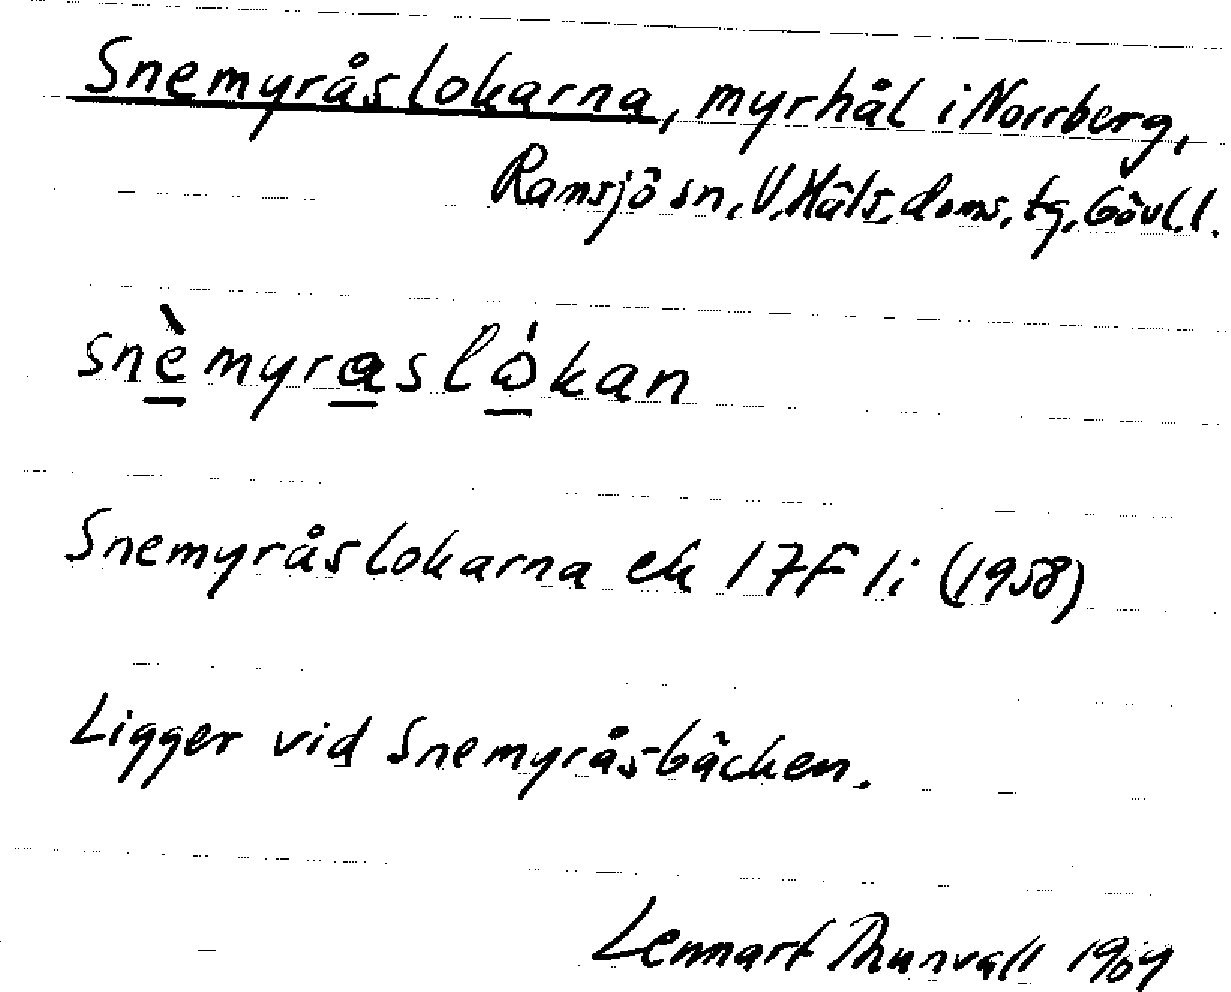 Snemyråslokarna, myrhål i Norrberg,
Ramsjö sn, V. Häls. doms. tg, Gävl. l.
snè̱myra̱sló̱kan
Snemyråslokarna ek 17F 1i (1958)
Ligger vid Snemyråsbäcken.
Lennart Thunvall 1964